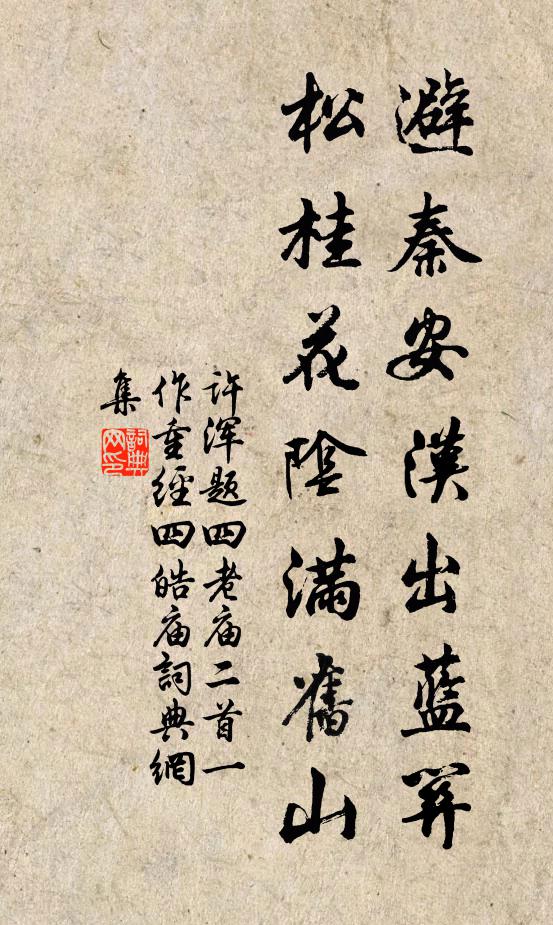 避秦安漢出藍關
松桂花陰滿舊山
許渾題四老庙二首一
作重經四皓庙詞典網
集
詞典
网印